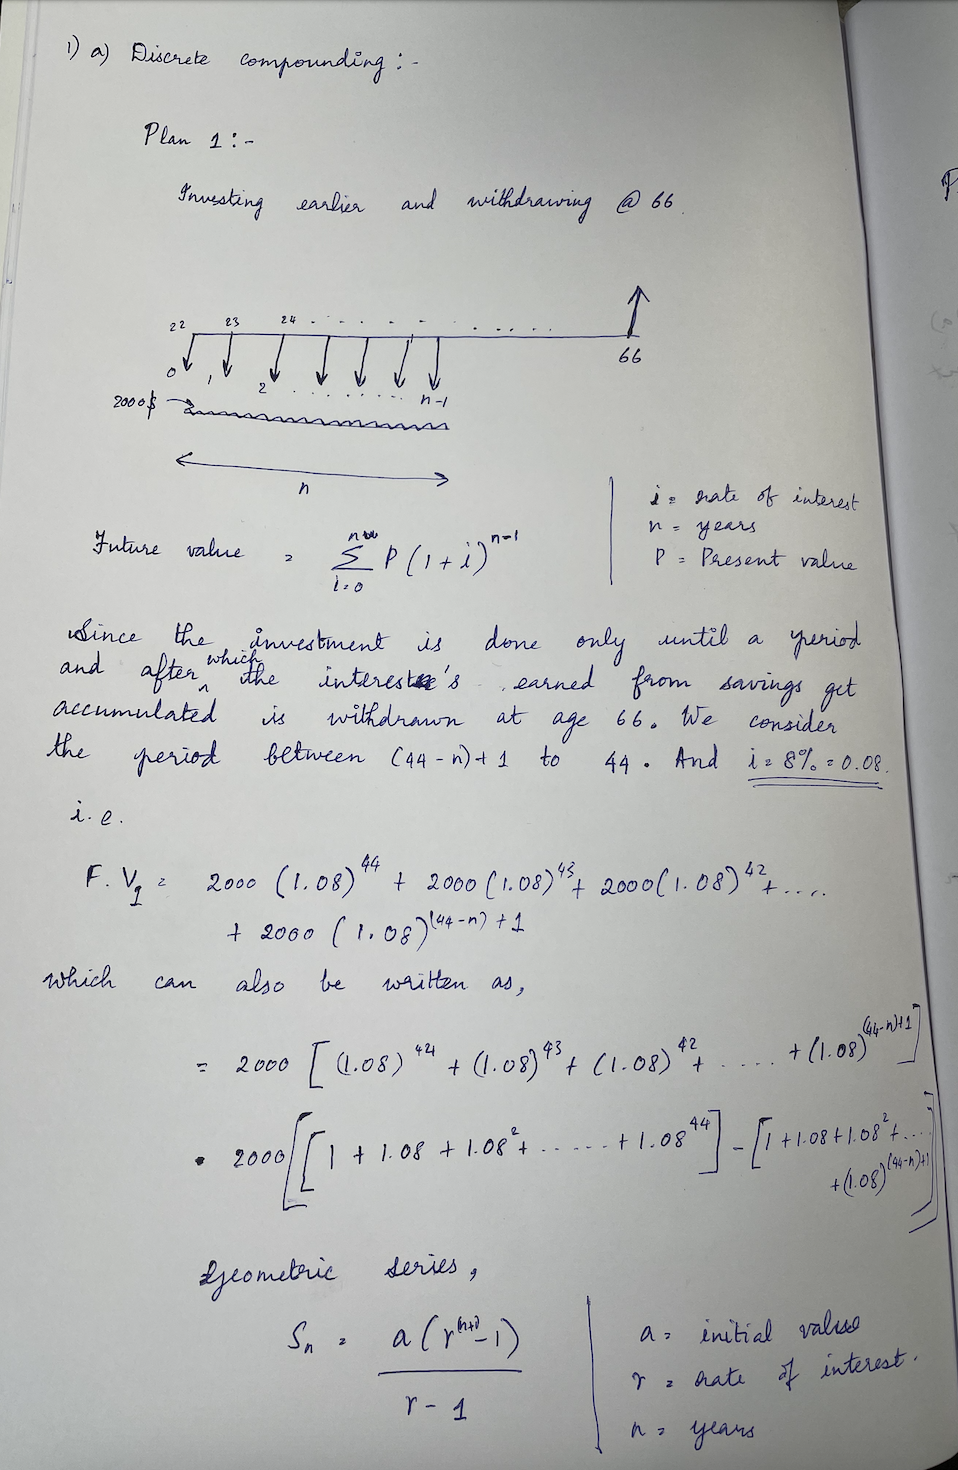 1) a) Discrete compounding :-
Plan 1 :-
Investing earlier and withdrawing @ 66.
22 23 24 . . . . . . . . .
66
0 1 2 . . . . . . . n-1
2000$
n
i = rate of interest
n = years
P = Present value
Future value = Σ P (1+i)^{n-1}
i=0
Since the investment is done only until a period
and after which the interest's earned from savings get
accumulated is withdrawn at age 66. We consider
the period between (44-n)+1 to 44. And i = 8% = 0.08.
i.e.
F.V_1 = 2000 (1.08)^{44} + 2000 (1.08)^{43} + 2000 (1.08)^{42} + ....
+ 2000 (1.08)^{(44-n)+1}
which can also be written as,
= 2000 [ (1.08)^{44} + (1.08)^{43} + (1.08)^{42} + ..... + (1.08)^{(44-n)+1} ]
• 2000 [ [ 1 + 1.08 + 1.08^2 + ...... + 1.08^{44} ] - [ 1 + 1.08 + 1.08^2 + ....
+ (1.08)^{(44-n)+1} ] ]
Geometric series,
S_n = a (r^{(n+1)} - 1)
r - 1
a = initial value
r = rate of interest.
n = years